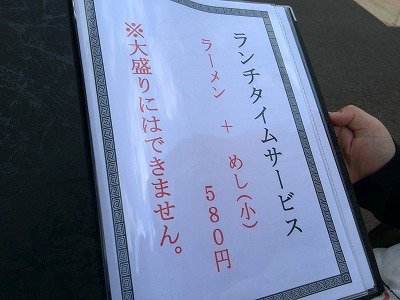 ランチタイムサービス
ラーメン + めし(小)
580円
※大盛りにはできません。